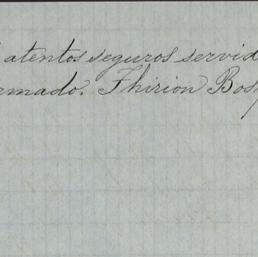 atentos seguros servid
rmado. Fhirion Bos